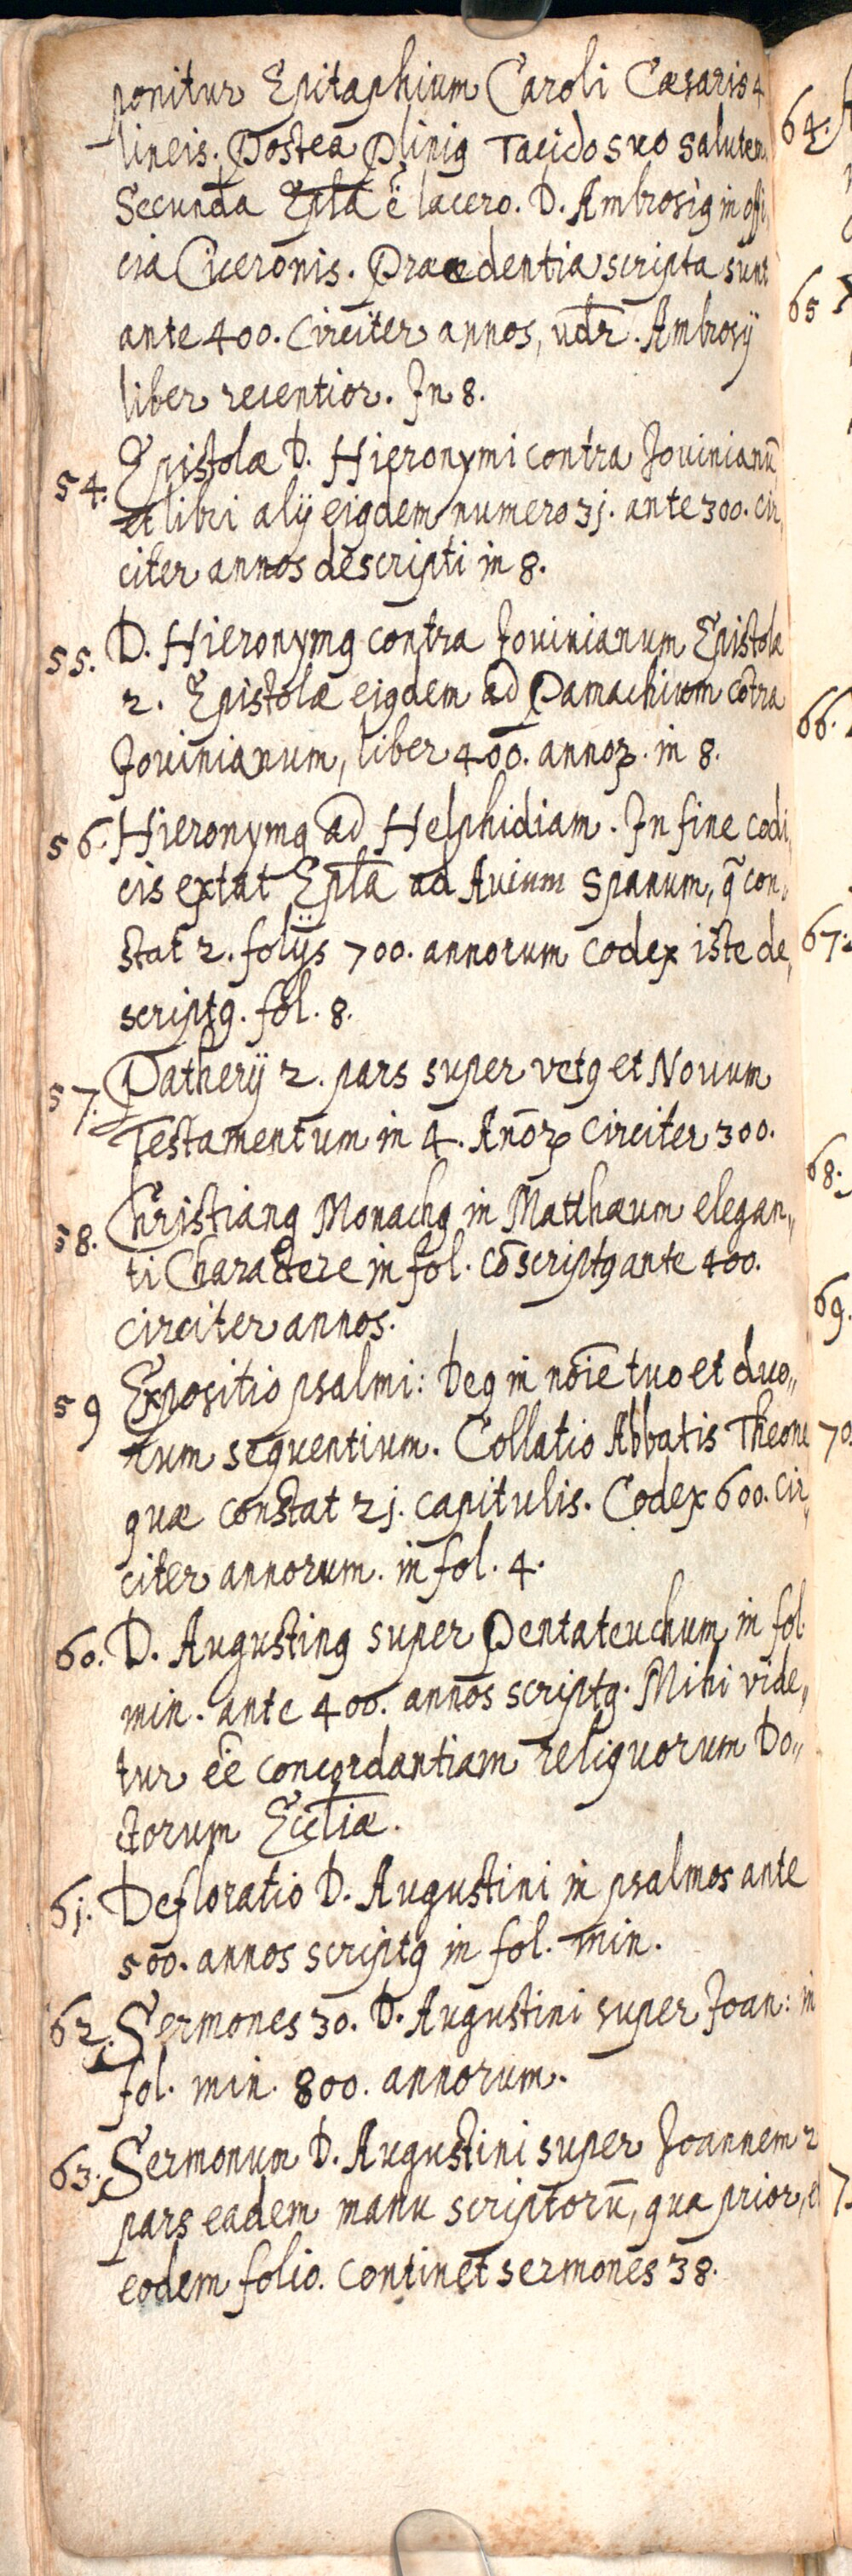 ponitur Epitaphium Caroli Cæsaris 4
lineis. Postea Pliniꝰ Tacido suo salutem
Secunda Epl̄a ē lacero. D. Ambrosiꝰ in offi
cia Ciceronis. Præcedentia scripta sunt
ante 400. Circiter annos, vdr̄. Ambrosÿ
liber recentior. In 8.
54. Epistolæ D. Hieronymi contra Jouinianū
et libri alÿ eiꝰdem numero 3j. ante 300. cir,
citer annos descripti in 8.
55. D. Hieronymꝰ contra Jouinianum Epistolæ
2. Epistolæ eiꝰdem ad Pamachium cōtra
Jouinianum, liber 400. annoꝝ. in 8.
56. Hieronymꝰ ad Helphidiam. In fine codi,
cis extat Epl̄a ad Auium Spanum, q̄ con,
stat 2. folÿs 700. annorum codex iste de,
scriptꝰ. fol. 8.
57. Patherÿ 2. pars super vetꝰ et Nouum
Testamentum in 4. Anōꝝ circiter 300.
58. Christianꝰ Monachꝰ in Matthæum elegan„
ti Charactere in fol. cōscriptꝰ ante 400.
circiter annos.
59 Expositio psalmi: Deꝰ in nōie tuo et duo„
rum sequentium. Collatio Abbatis Theonæ
quæ constat 2j. capitulis. Codex 600. cir,
citer annorum. in fol. 4.
60. D. Augustinꝰ super Pentateuchum in fol
min. ante 400. annos scriptꝰ. Mihi vide„
tur ēē concordantiam reliquorum Do„
ctorum Eccl̄iæ.
6j. Defloratio D. Augustini in psalmos ante
500. annos scriptꝰ in fol. min.
62. Sermones 30. D. Augustini super Joan: in
fol. min. 800. annorum.
63. Sermonum D. Augustini super Joannem 2
pars eadem manu scriptorū, qua prior, e
eodem folio. Continet sermones 38.
64.
65
66.
67.
68.
69.
70